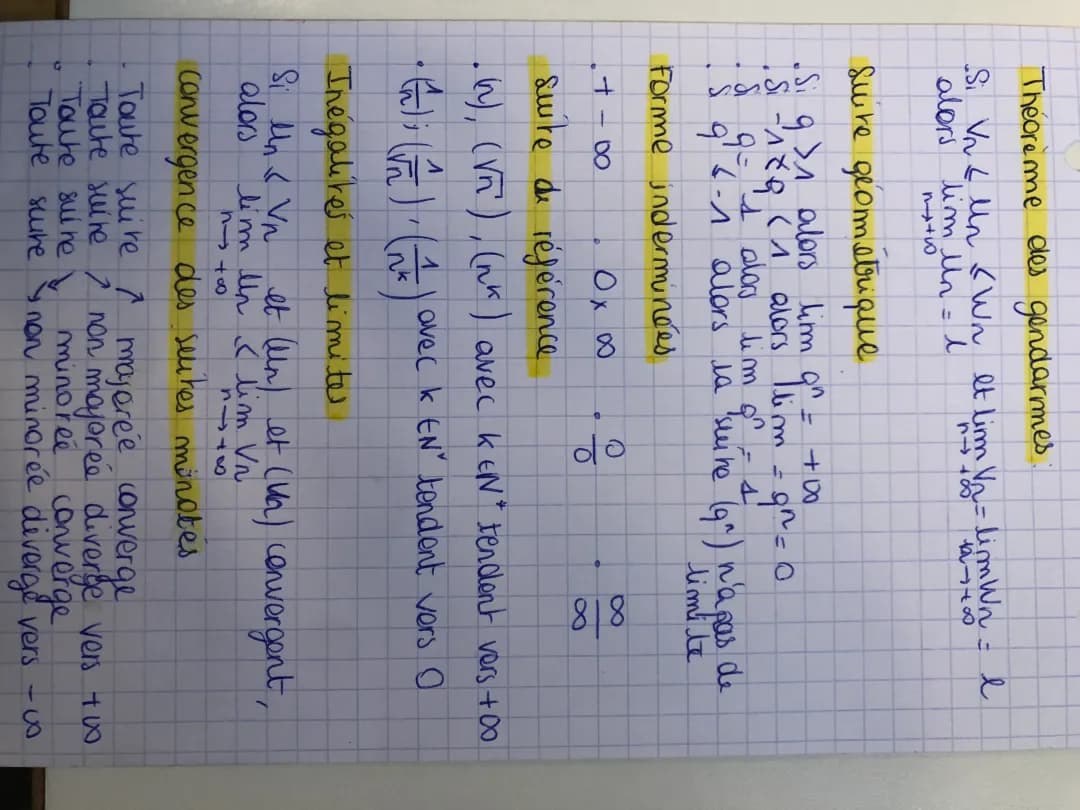 Théorème des gendarmes
.Si Vn ≤ Un ≤ Wn et lim Vn = lim Wn = l
n→+∞ n→+∞
alors lim Un = l
n→+∞
Suite géométrique
.Si q > 1 alors lim qⁿ = +∞
.Si -1 < q < 1 alors lim = qⁿ = 0
.Si q = 1 alors lim qⁿ = 1
.Si q ≤ -1 alors la suite (qⁿ) n'a pas de
limite
Forme inderminées
.+ - ∞ . 0 × ∞ . 0/0 . ∞/∞
Suite de référence
.(n), (√n), (nᵏ) avec k ∈ N* tendent vers +∞
.(1/n); (1/√n), (1/nᵏ) avec k ∈ N* tendent vers 0
Inégalités et limites
Si Un ≤ Vn et (Un) et (Vn) convergent,
alors lim Un ≤ lim Vn
n→+∞ n→+∞
Convergence des suites minotés
. Toute suite ↗ majorée converge
. Toute suite ↗ non majorée diverge vers +∞
. Toute suite ↘ minorée converge
. Toute suite ↘ non minorée diverge vers -∞